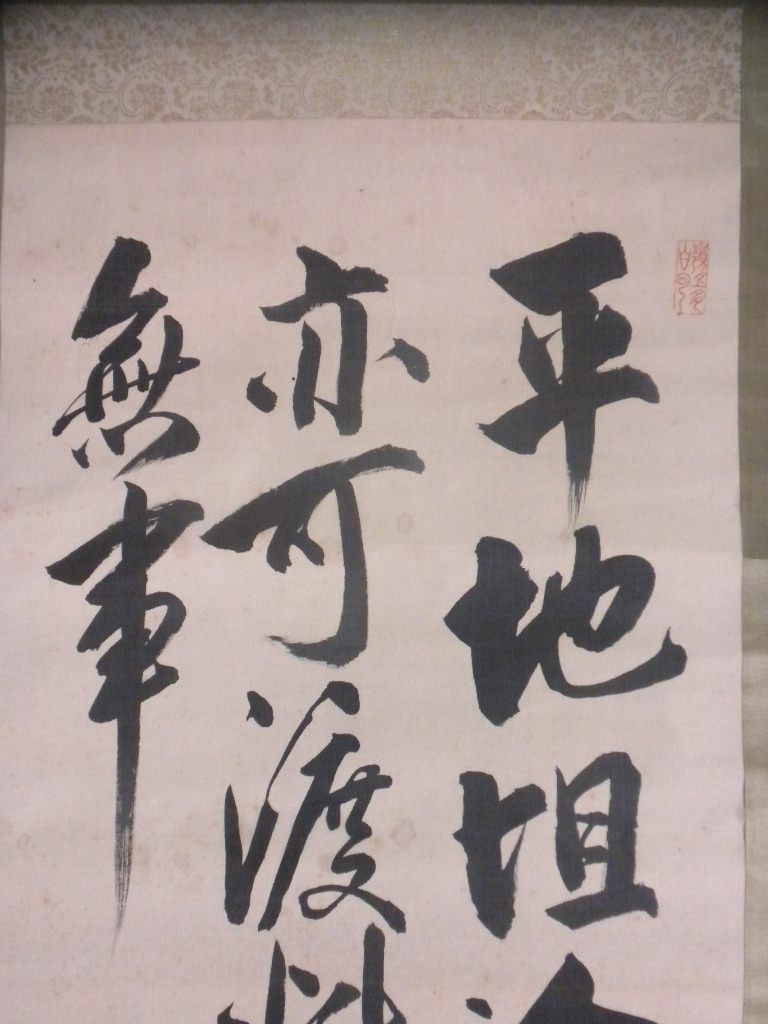 平地坦
亦可渡
無事